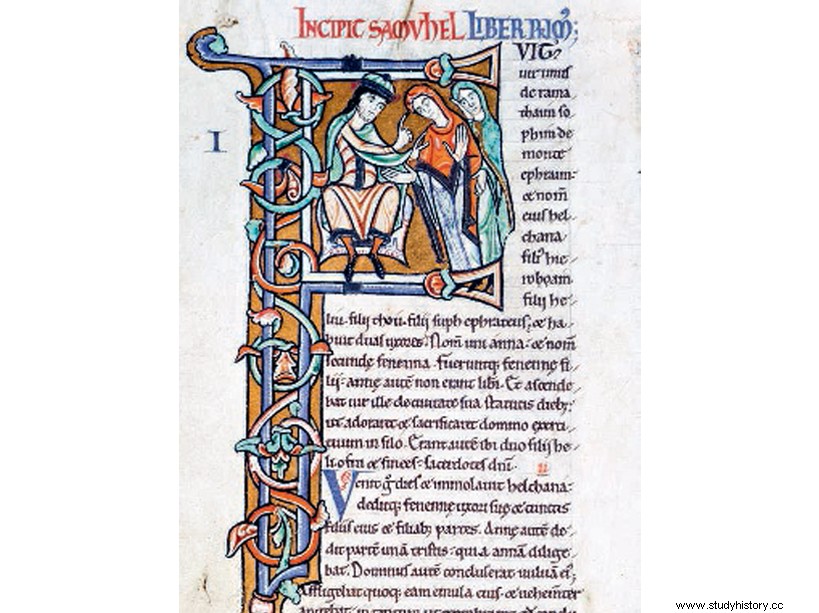 INCIPIT SAMVHEL LIBER PRIM';
VIT
uir unus
de rama
thaim so
phim de
monte
ephraim:
& nom̄
eius hel-
chana
fili' hie-
roboam
filii he-
I
liu. filii thou. filii suph ephrateus; & ha-
buit duas uxores. Nom̄ uni anna. & nom̄
secunde fenenna. Fueruntq; fenenne fi-
lii. anne autē non erant libi. Et ascende-
bat uir ille de ciuitate sua statutis dieb;
ut adoraret & sacrificaret domino exerci-
tuum in silo. Erant autē ibi duo filii he-
li ofni & finees. sacerdotes dn̄i. II
Venit g̊ dies & immolauit helchana:
deditq; fenenne uxori sue & cunctis
filiis eius & filiab; partes. Anne autē de-
dit partē unā tristis. quia annā dilige-
bat. Dominus autē concluserat uuluā ei';
Affligebat quoq; eam emula eius. & uehementer
angebat. in
www.studyhistory.cc